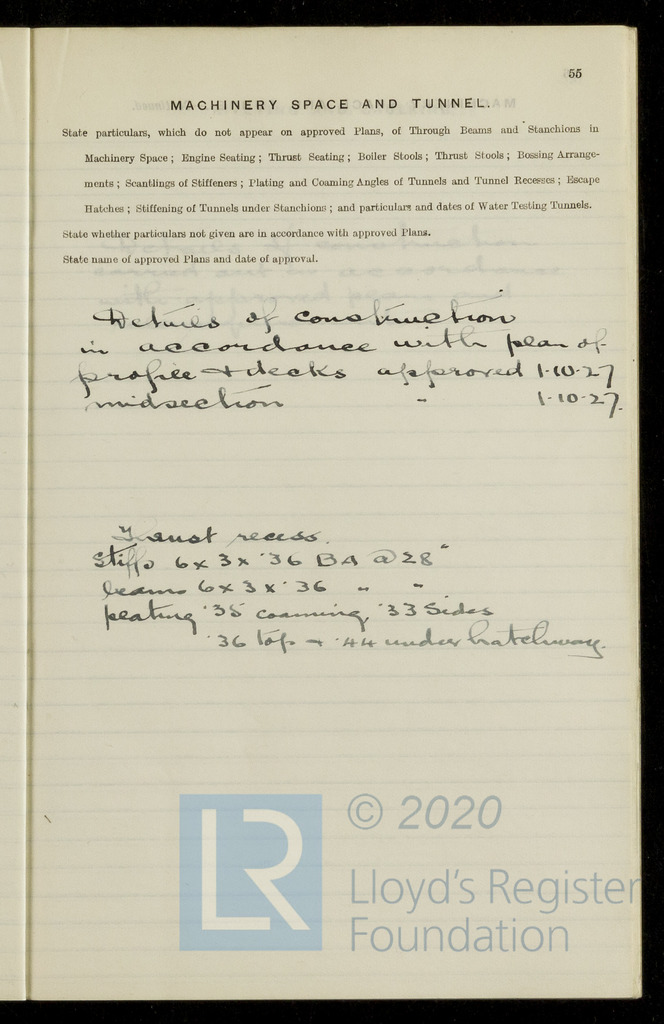 55
MACHINERY SPACE AND TUNNEL.
State particulars, which do not appear on approved Plans, of Through Beams and Stanchions in
Machinery Space; Engine Seating; Thrust Seating; Boiler Stools; Thrust Stools; Bossing Arrange-
ments; Scantlings of Stiffeners; Plating and Coaming Angles of Tunnels and Tunnel Recesses; Escape
Hatches; Stiffening of Tunnels under Stanchions; and particulars and dates of Water Testing Tunnels.
State whether particulars not given are in accordance with approved Plans.
State name of approved Plans and date of approval.
Details of construction
in accordance with plan of
profile + decks approved 1-10-27
midsection " 1-10-27.
Thrust recess.
Stiffs 6 x 3 x .36 BA @ 28"
beams 6 x 3 x .36 " "
plating .35 coaming, .33 sides
.36 top + .44 under hatchway.
LR
© 2020
Lloyd's Register
Foundation